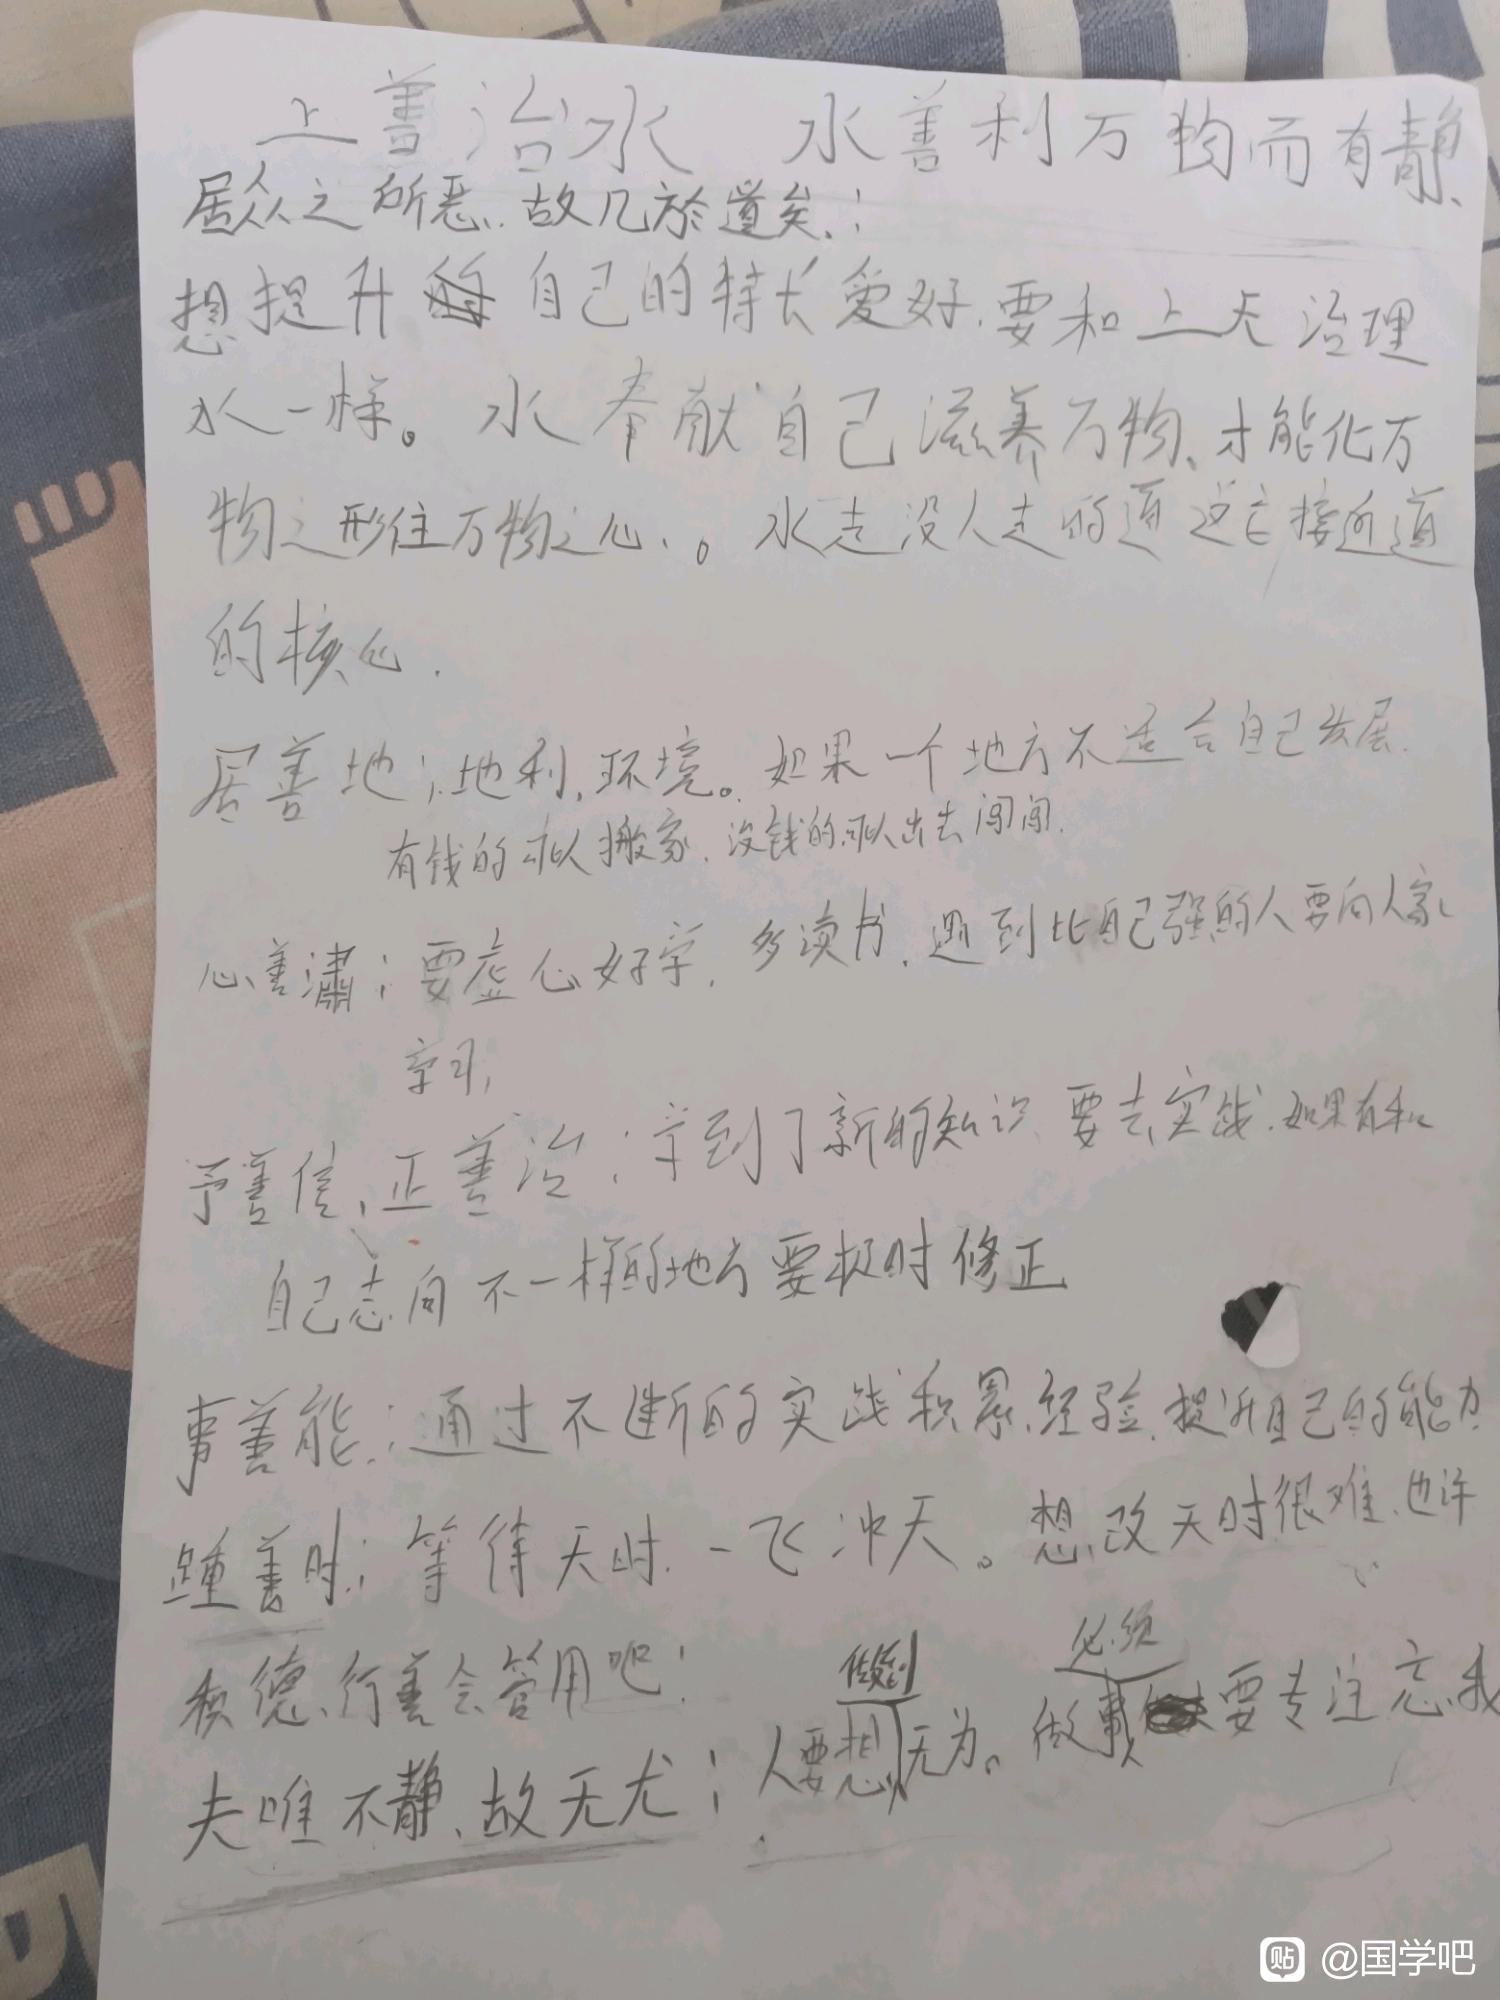 上善治水 水善利万物而有静、
居众之所恶、故几於道矣、;
想提升自己的特长爱好、要和上天治理
水一样。水奉献自己滋养万物、才能化万
物之形住万物之心、。水走没人走的道 这它接近道
的核心.
居善地;地利,环境。如果一个地方不适合自己发展.
有钱的可以搬家.没钱的可以出去闯闯.
心善潚;要虚心好学,多读书,遇到比自己强的人要向人家
学习,
予善信、正善治;学到了新的知识、要去实践.如果有和
自己志向不一样的地方要极时修正
事善能;通过不断的实践积累经验.提升自己的能力
踵善时;等待天时.一飞冲天。想改天时很难、也许
积德、行善会管用吧!
做到 必须
夫唯不静、故无尤;人要想无为。做事要专注忘我
@国学吧